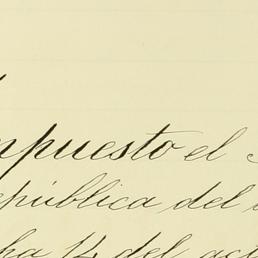 mpuesto el
epública del
ha 14 del act